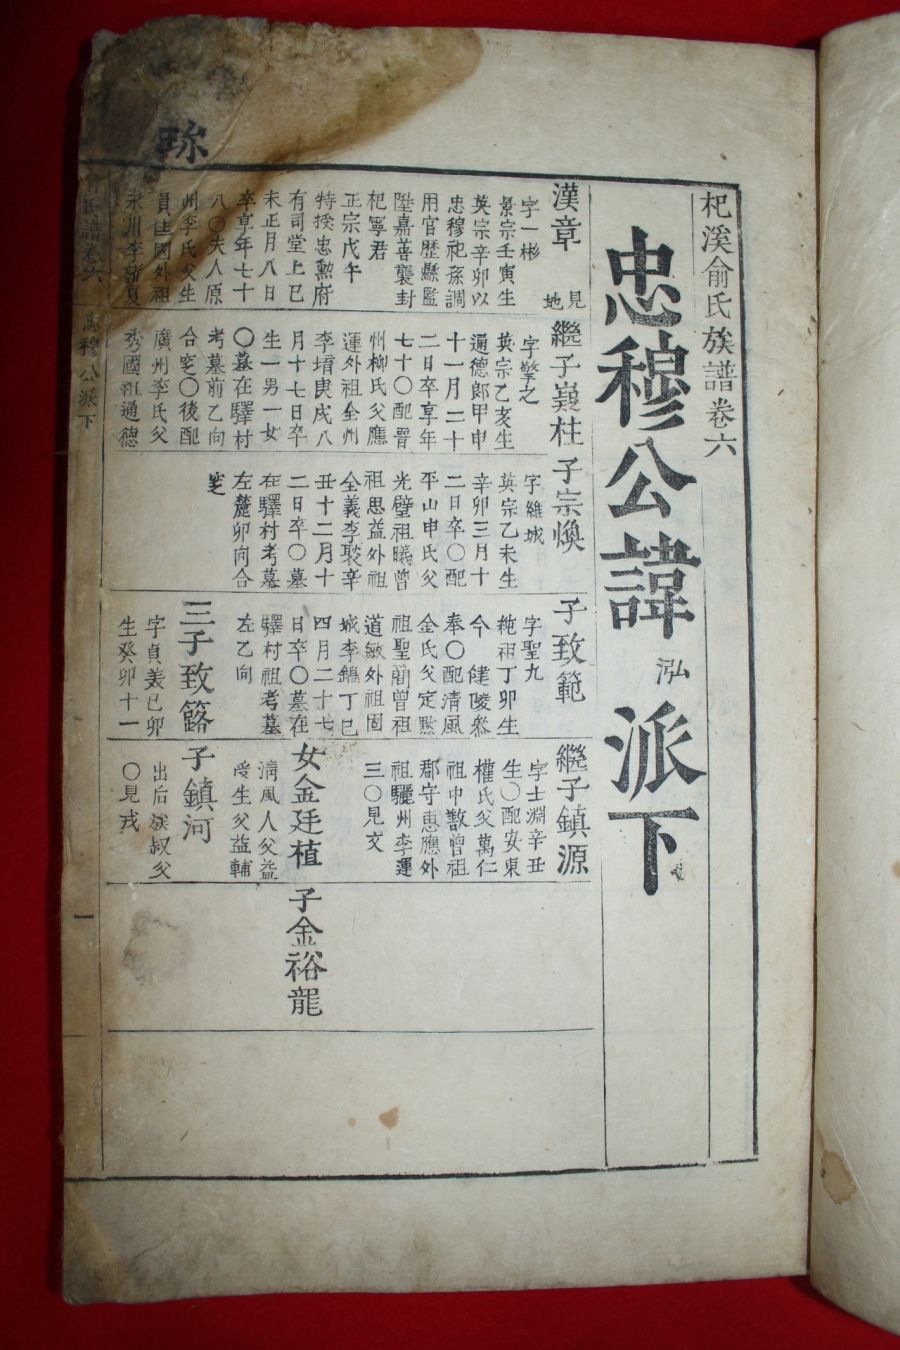 杞溪俞氏族譜卷六
忠穆公諱泓派下
珎
漢章
見地
字一彬
景宗壬寅生
英宗辛卯以
忠穆祀孫調
用官歷縣監
陞嘉善襲封
杞寧君
正宗戊午
特授忠勳府
有司堂上己
未正月八日
卒享年七十
八〇夫人原
州李氏父生
員 國外祖
永川李
繼子 柱
字擎之
英宗乙亥生
通德郎甲申
十一月二十
二日卒享年
七十〇配晋
州柳氏父應
運外祖全州
李 庚戌八
月十七日卒
生一男一女
〇墓在驛村
考墓前乙向
合窆〇後配
廣州李氏父
秀國祖通德
子宗煥
字維城
英宗乙未生
辛卯三月十
二日卒〇配
平山申氏父
光璧祖曦曾
祖思益外祖
全義李 辛
丑十二月十
二日卒〇墓
在驛村考墓
左麓卯向合
窆
子致範
字聖九
純祖丁卯生
今 健陵叅
奉〇配清風
金氏父定
祖聖 曾祖
道敏外祖固
城李 丁巳
四月二十七
日卒〇墓在
驛村祖考墓
左乙向
三子致簬
字貞 己卯
生癸卯十一
繼子鎮源
字士淵辛丑
生〇配安東
權氏父萬仁
祖中 曾祖
郡守 應外
祖驪州李運
三〇見文
女金廷植
清風人父益
生父益輔
子鎮河
出后族叔父
〇見戎
子金裕龍
氏譜卷六
忠穆公派下
一